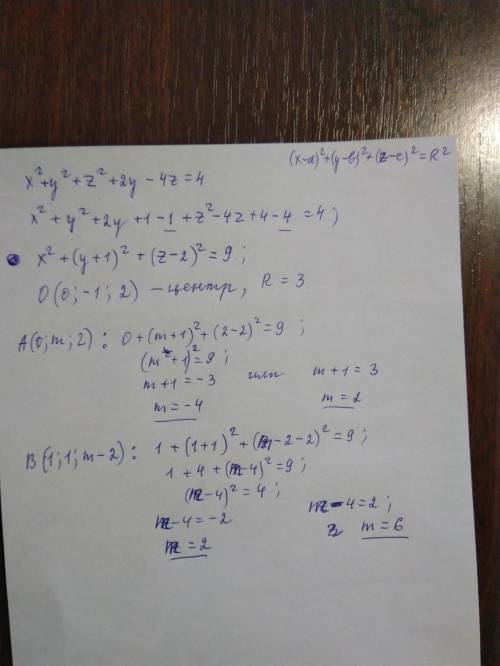 (x-a)²+(y-b)²+(z-c)²=R²
x²+y²+z²+2y-4z=4
x²+y²+2y+1-1+z²-4z+4-4=4;
x²+(y+1)²+(z-2)²=9;
O(0;-1;2) – центр, R=3.
A(0;m;2): 0+(m+1)²+(2-2)²=9;
(m+1)²=9;
m+1=-3 или m+1=3
m=-4 m=2
B(1;1;m-2): 1+(1+1)²+(m-2-2)²=9;
1+4+(m-4)²=9;
(m-4)²=4;
m-4=-2 m-4=2;
m=2 m=6